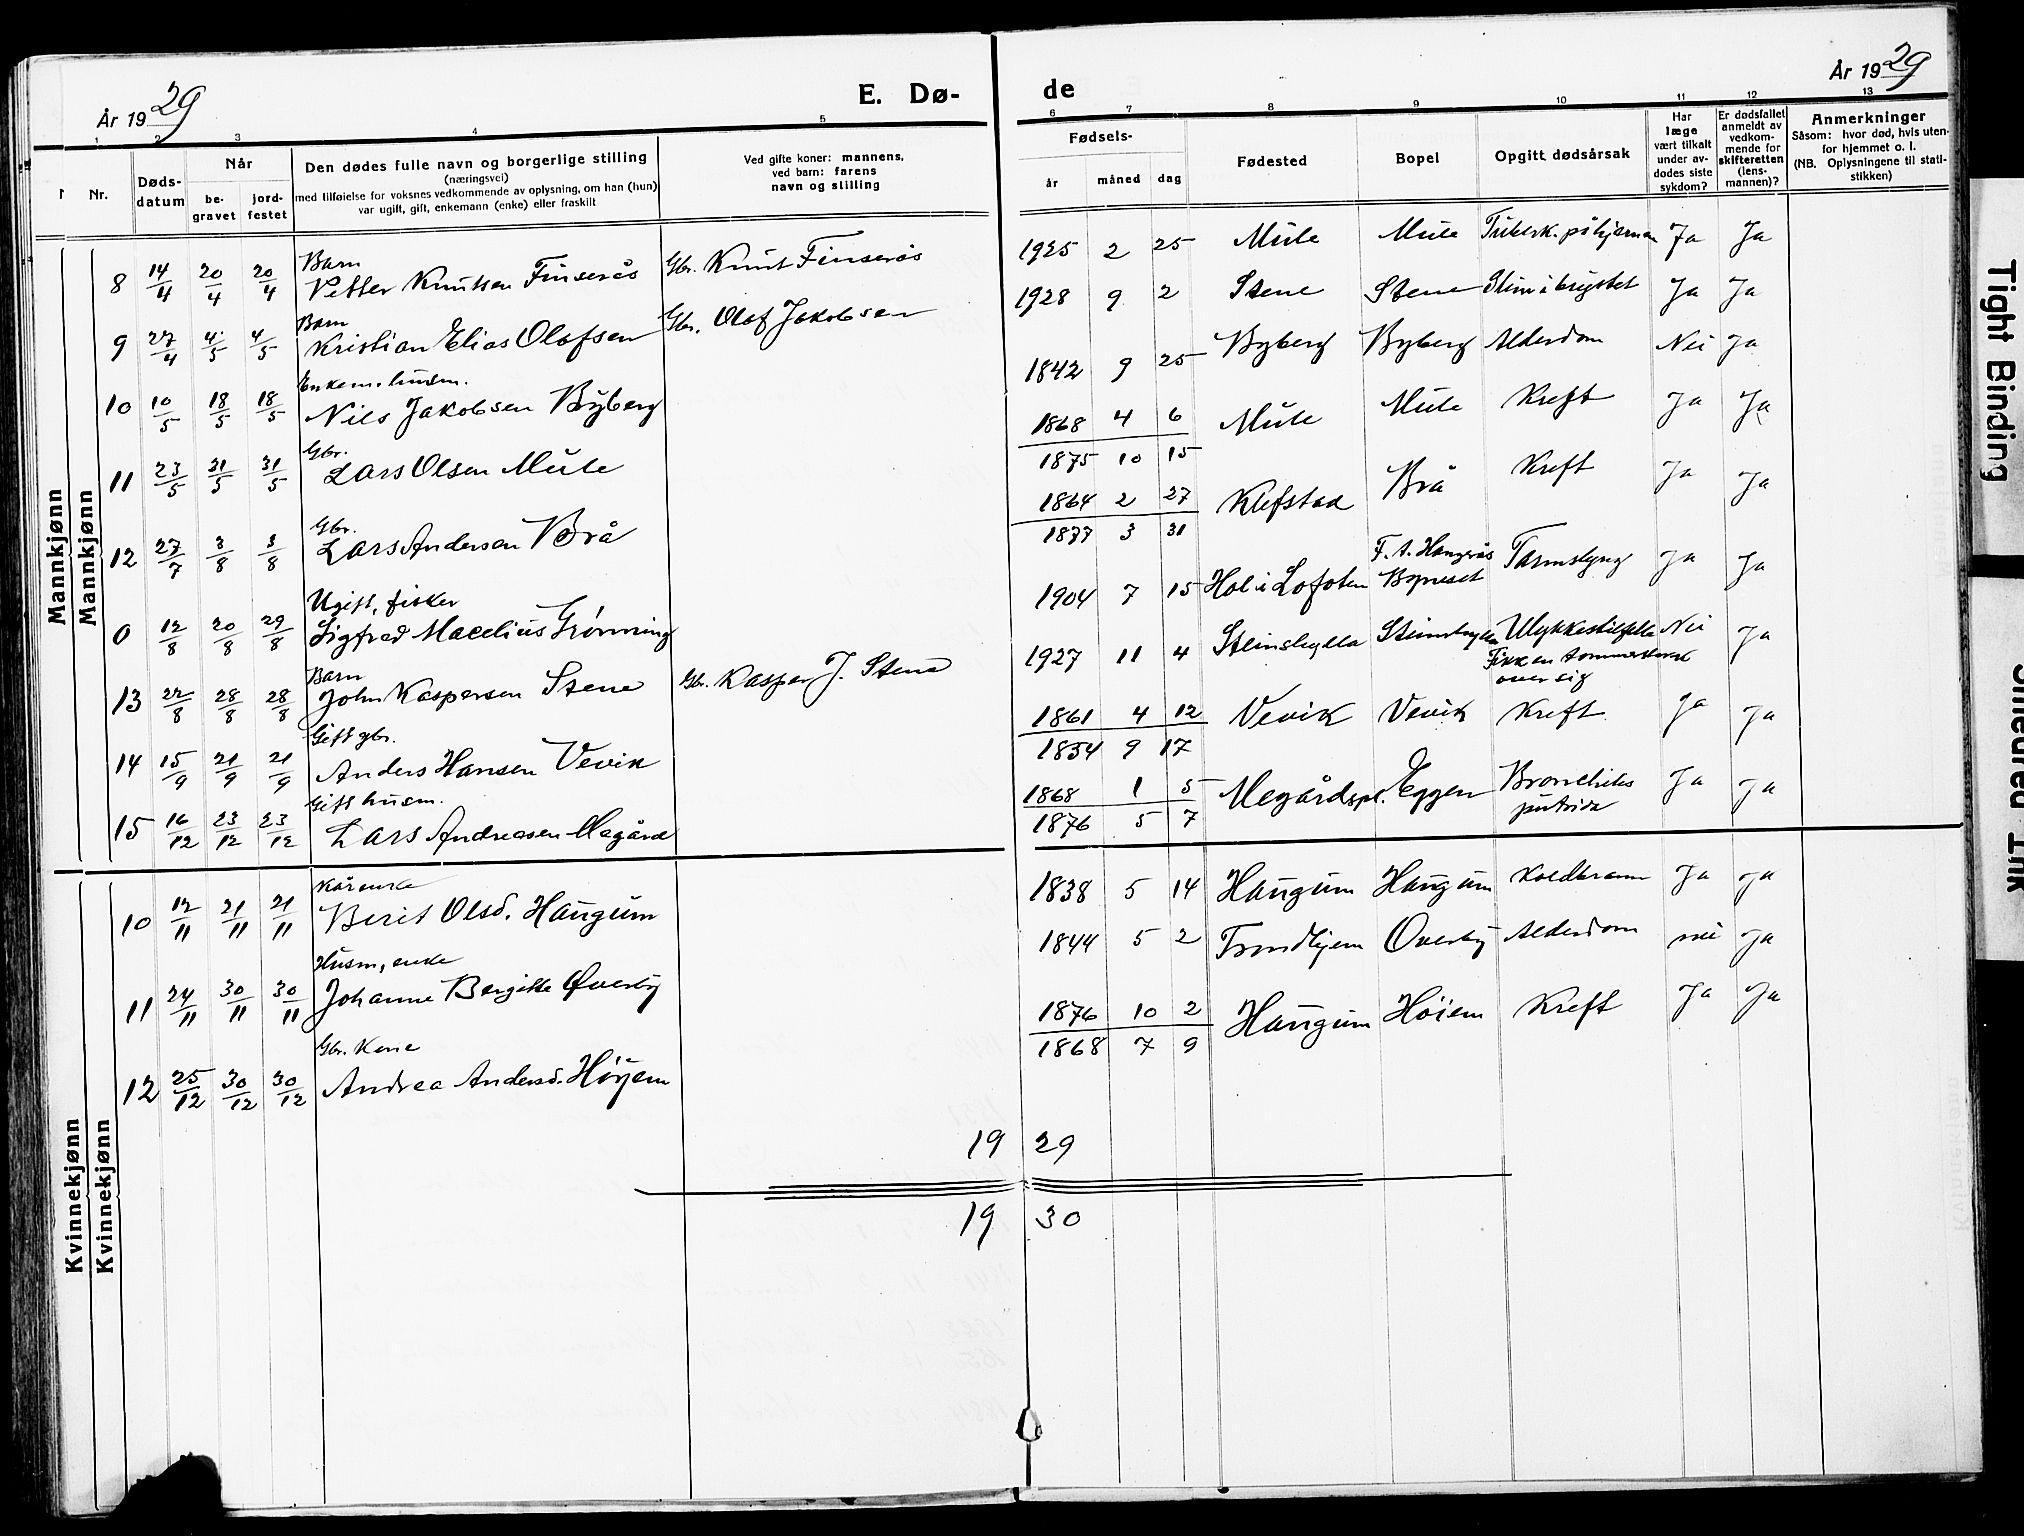 År 1929
E. Dø-
de
År 1929
1 2 3 4 5
6 7 8 9 10 11 12 13
Nr.
Døds-
datum
Når
be-
gravet
jord-
festet
Den dødes fulle navn og borgerlige stilling
(næringsvei)
med tilføielse for voksnes vedkommende av oplysning, om han (hun)
var ugift, gift, enkemann (enke) eller fraskilt
Ved gifte koner: mannens,
ved barn: farens
navn og stilling
Fødsels-
år måned dag
Fødested
Bopel
Opgitt dødsårsak
Har
læge
vært tilkalt
under av-
dødes siste
sykdom?
Er dødsfallet
anmeldt av
vedkom-
mende for
skifteretten
(lens-
mannen)?
Anmerkninger
Såsom: hvor død, hvis uten-
for hjemmet o. l.
(NB. Oplysningene til stati-
stikken)
Mannkjønn
Mannkjønn
Barn
8 14/4 20/4 20/4 Petter Knutsen Finserås Gbr. Knut Finserås 1925 2 25 Mule Mule Tuberk. på hjernen Ja Ja
Barn
9 27/4 4/5 4/5 Kristian Elias Olofsen Gbr. Olof Jakobsen 1928 9 2 Stene Stene Slim i brystet Ja Ja
Enkem. husm.
10 10/5 18/5 18/5 Nils Jakobsen Byberg 1842 9 25 Byberg Byberg Alderdom Nei Ja
Gbr.
11 23/5 31/5 31/5 Lars Olsen Mule 1868 4 6 Mule Mule Kreft Ja Ja
1875 10 15
Gbr.
12 27/7 3/8 3/8 Lars Andersen Brå 1864 2 27 Klefstad Brå Kreft Ja Ja
1877 3 31
Ugift, fisker
0 12/8 20/8 29/8 Sigfred Macelius Grønning 1904 7 15 Hol i Lofoten F. A. Hangerås
Byneset Tarmslyng Ja Ja
Barn
13 22/8 28/8 28/8 John Kaspersen Stene Gbr. Kasper J. Stene 1927 11 4 Steinshylla Steinshylla Ulykkestilfelle Nei Ja
Fikk en tømmerstokk
over sig
Gift gbr.
14 15/9 21/9 21/9 Anders Hansen Vevik 1861 4 12 Vevik Vevik Kreft Ja Ja
1854 9 17
Gift husm.
15 16/12 23/12 23/12 Lars Andreasen Megård 1868 1 5 Megårdspl. Eggen Bronchitis
putrida Ja Ja
1876 5 7
Kvinnekjønn
Kvinnekjønn
Kårenke
10 12/11 21/11 21/11 Berit Olsd. Haugum 1838 5 14 Haugum Haugum Koldbrann Ja Ja
Husm, enke
11 24/11 30/11 30/11 Johanne Bergitte Øverby 1844 5 2 Trondhjem Overby Alderdom nei Ja
Gbr. Kone
12 25/12 30/12 30/12 Andrea Andersd. Høyem 1876 10 2 Haugum Høiem Kreft Ja Ja
1868 7 9
19 29
19 30
Tight Binding